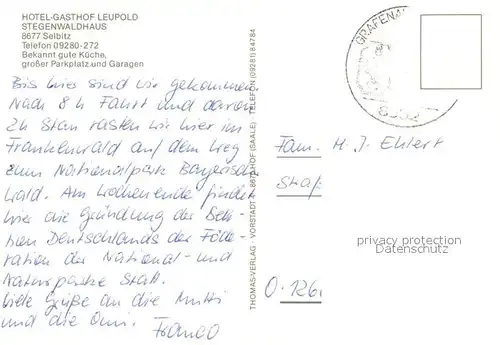 HOTEL-GASTHOF LEUPOLD
STEGENWALDHAUS
8677 Selbitz
Telefon 09280-272
Bekannt gute Küche,
großer Parkplatz und Garagen
Bis hier sind wir gekommen
Nach 8 h Fahrt und davon
2h Stau rasten wir hier im
Frankenwald auf dem Weg
zum Nationalpark Bayerisch
Wald. Am Wochenende findet
hier die Gründung der Sek-
tion Deutschlands der Föde-
ration der National- und
Naturparke statt.
Viele Grüße an die Mutti
und die Omi. Franco
THOMAS-VERLAG · VORSTADT · 8670 HOF (SAALE) · TELEFON (09281) 84784
GRAFENAU
8352
Fam. H. J. Ehlert
Straß
O-126
privacy protection